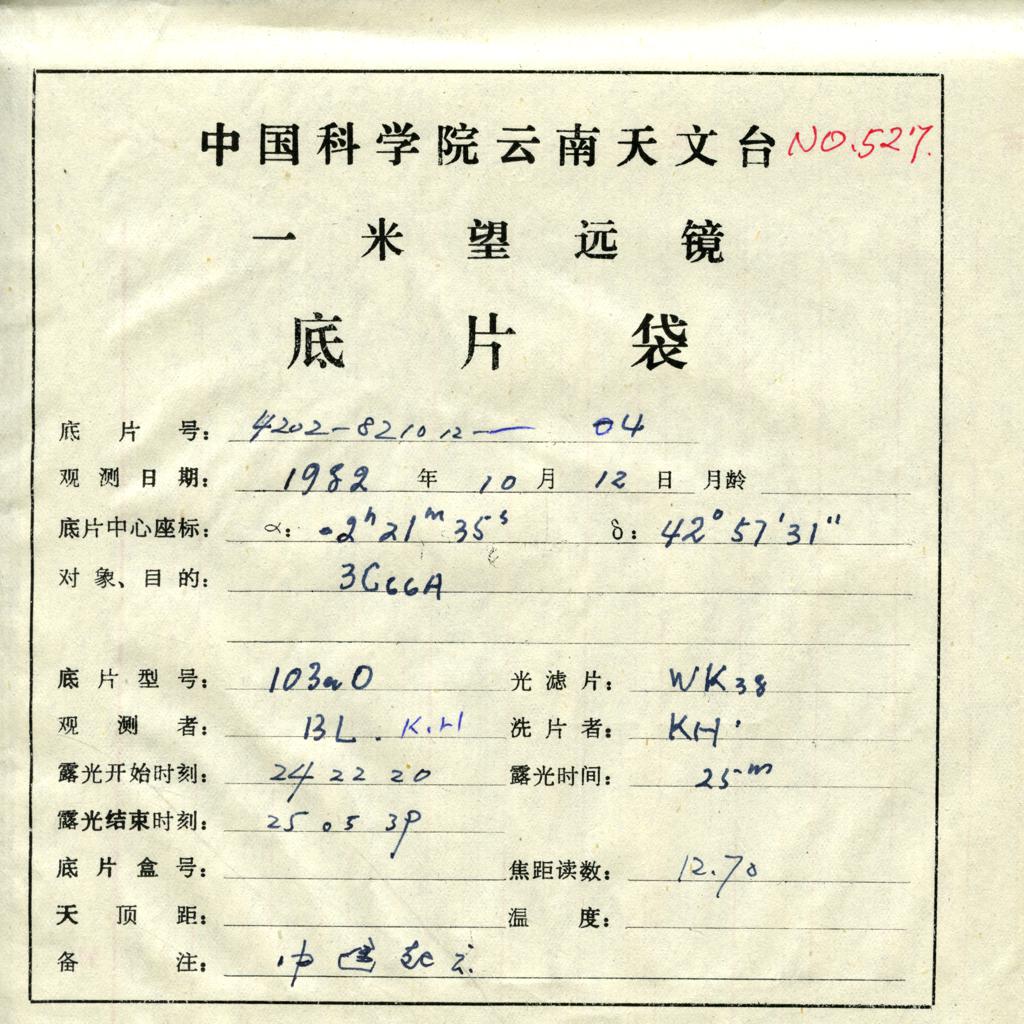 中国科学院云南天文台 NO.527.
一米望远镜
底片袋
底片号: 4202-821012— 04
观测日期: 1982年10月12日 月龄
底片中心座标: α: 02ʰ21ᵐ35ˢ δ: 42°57′31″
对象、目的: 3C66A
底片型号: 103aO 光滤片: WK38
观测者: BL. K.H 洗片者: KH
露光开始时刻: 24 22 20 露光时间: 25ᵐ
露光结束时刻: 25 05
底片盒号: 焦距读数: 12.70
天顶距: 温度:
备注: